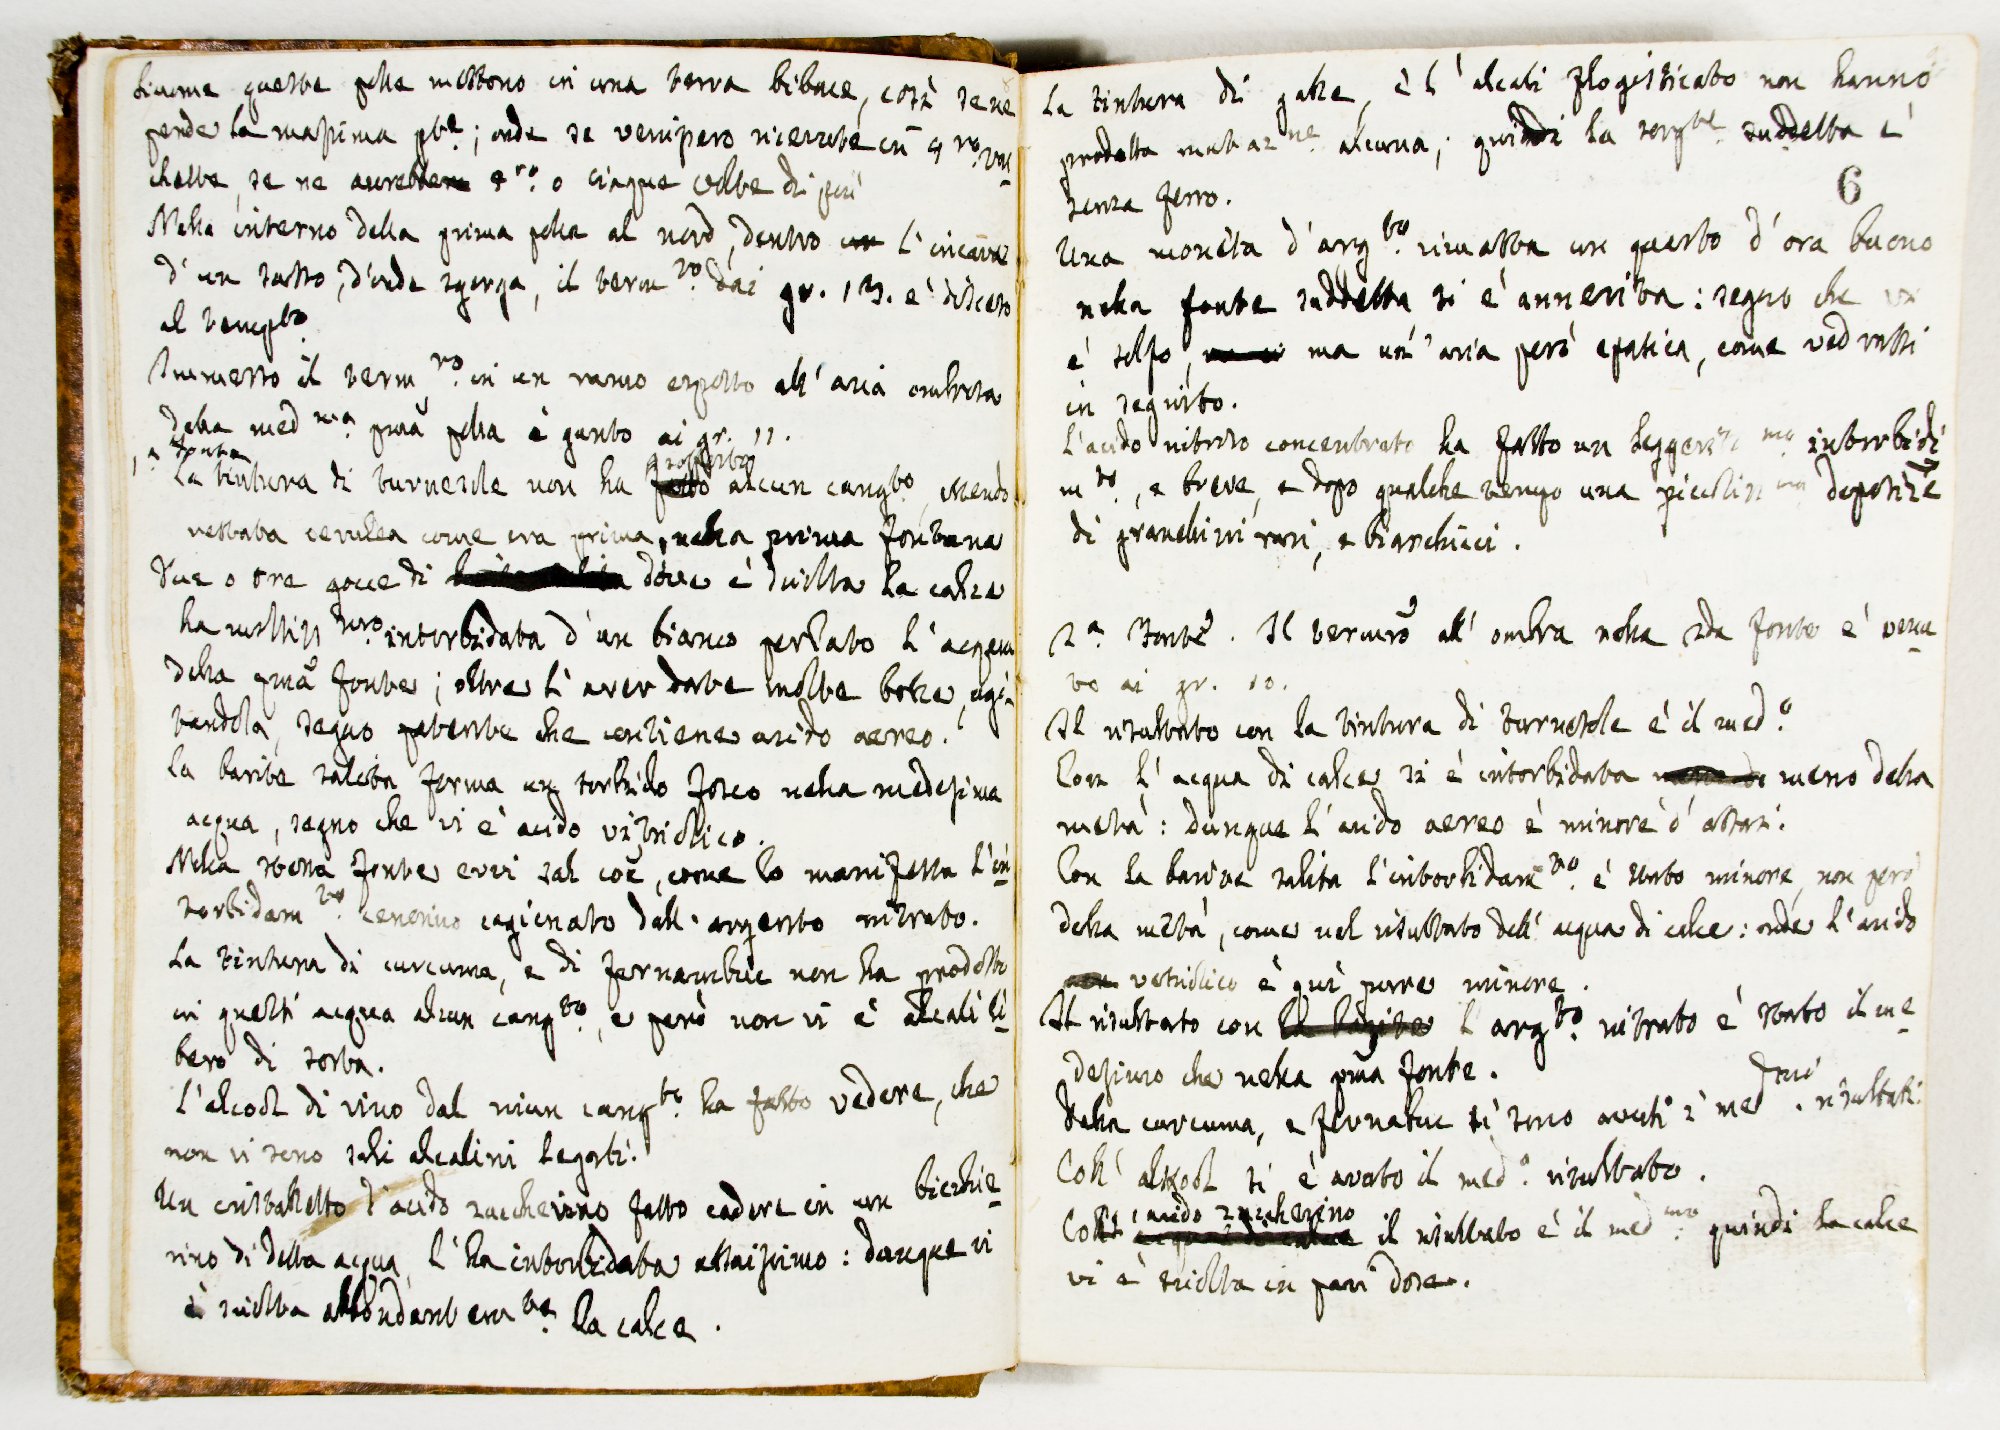 siccome queste polle mettono in una terra bibace, così se ne
perde la massima pte; onde se venissero ricevute in 4ro vas
chette, se ne avrebbero 4ro o cinque volte di più
Nella interno della prima polla al nord, dentro l'incavo
d'un sasso, d'onde sgorga, il termro dai gr. 12. è disceso
al tempto
Immerso il termro in un vano esposto all'aria ombrosa
della medma pma polla è giunto ai gr. 11.
1.a Fonte
La tintura di turnesole non ha sofferto alcun cangto, essendo
restata cerulea come era prima, nella prima fontana
Due o tre gocce di dove è sciolta la calce
ha moltissmo intorbidata d'un bianco perlato l'acqua
della pma fonte; oltre l'aver date molte bolle, agi
tandola, segno patente che contiene acido aereo.
La barite salita forma un torbido fosco nella medesima
acqua, segno che vi è acido vitriolico.
Nella stessa fonte evvi sal coe, come lo manifesta l'in
torbidamto cenerino cagionato dall'argento nitrato.
La tintura di curcuma, e di fernambuc non ha prodotto
in questi acqua alcun cangto, e però non vi è alcali li
bero di sorta.
L'alcool di vino dal niun cangto ha fatto vedere, che
non vi sono sali alcalini legati.
Un cristalletto d'acido zuccherino fatto cadere in un bicchie
rino di detta acqua, l'ha intorbidata assaissimo: dunque vi
è sciolta abbondantemte la calce.
La tintura di galle, è l'alcali flogisticato non hanno
prodotta mutazne alcuna; quindi la sorgte suddetta è
6
senza ferro.
Una moneta d'argto rimasta un quarto d'ora buono
nella fonte suddetta si è annerita: segno che vi
è solfo, ma un'aria però epatica, come vedrassi
in seguito.
L'acido nitroso concentrato ha fatto un leggeriss mo intorbidi
mto, e breve, e dopo qualche tempo una piccoliss ma deposize
di granellini rari, e bianchicci.
2a Fonte. Il termro all'ombra nella 2da fonte è venu
to ai gr. 10.
Il risultato con la tintura di turnesole è il medo
Con l'acqua di calce si è intorbidata meno della
metà: dunque l'acido aereo è minore d'assai.
Con la barite salita l'intorbidamto è stato minore, non però
della metà, come nel risultato dell'acqua di calce: onde l'acido
vetriolico è quì pure minore.
Il risultato con l'argto nitrato è stato il me
desimo che nella pma fonte.
Dalla curcuma, e fernabuc si sono avuti i medesmi risultati.
Coll'alkool si è avuto il medo risultato.
Coll'acido zuccherino il risultato è il medmo quindi la calce
vi è sciolta in pari dose.